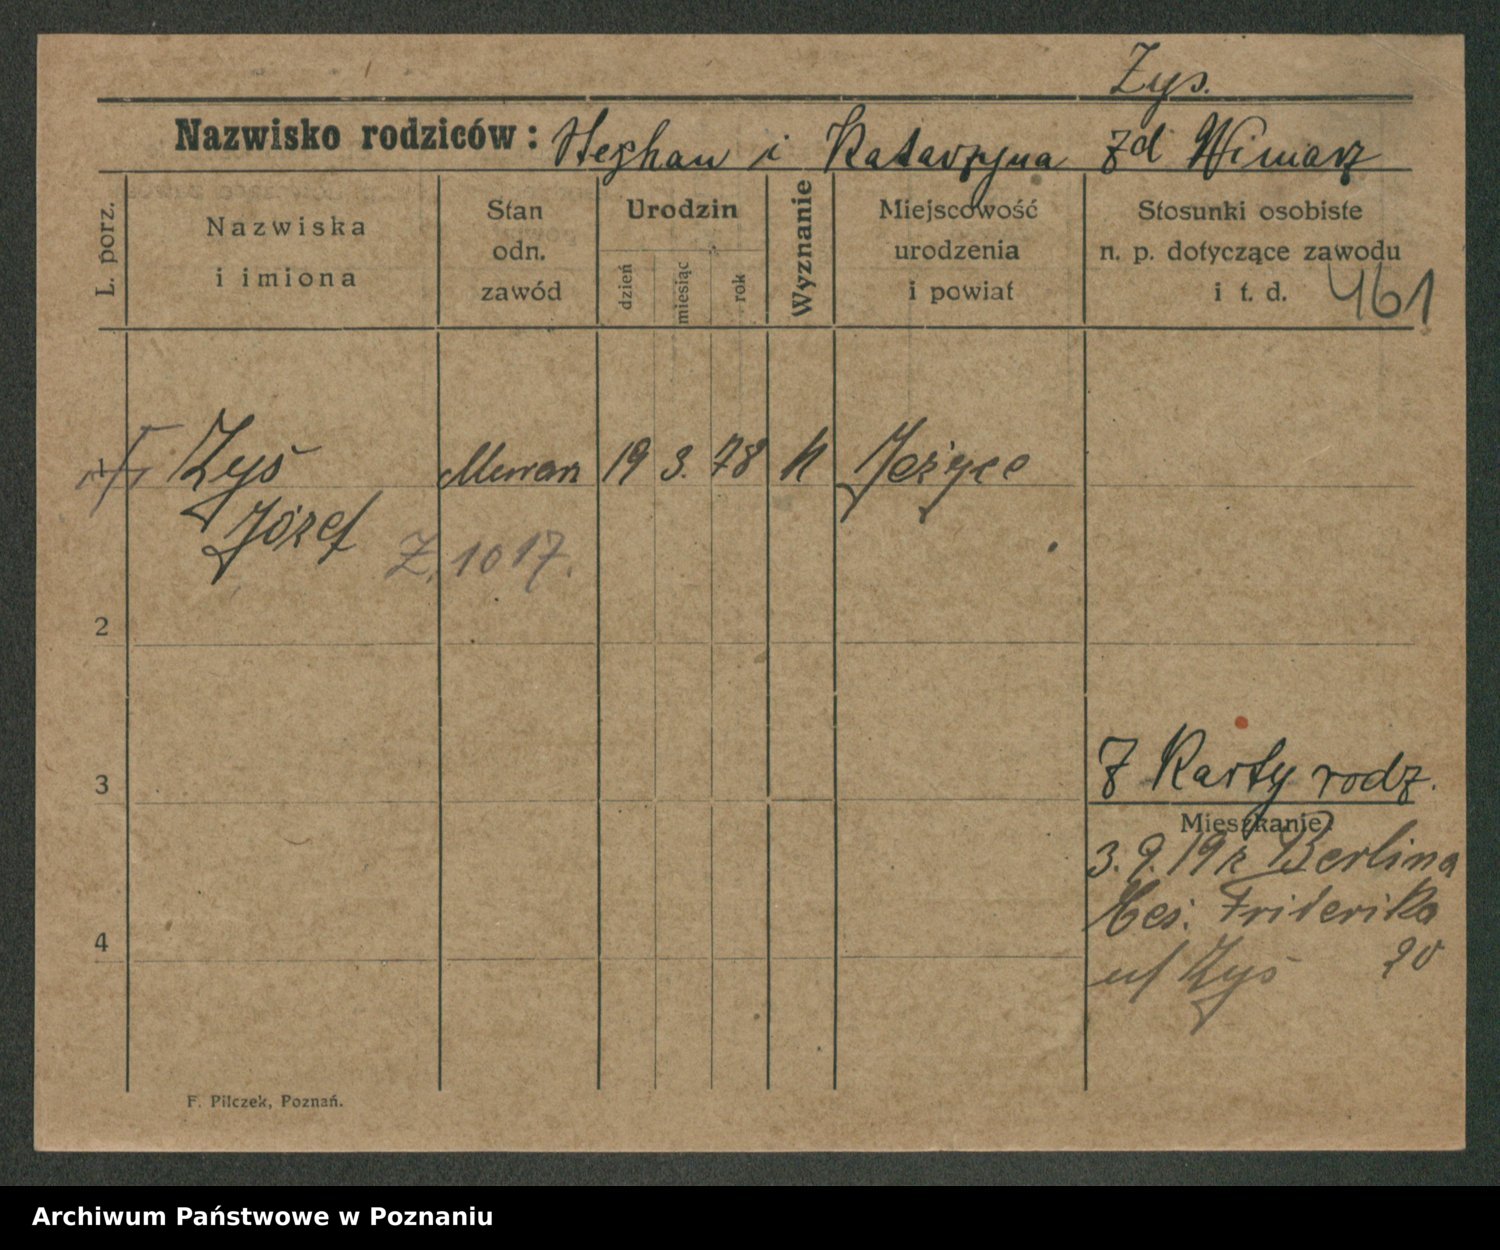 Zys.
Nazwisko rodziców: Stephan i Katarzyna zd Wimarz
L. porz.
Nazwiska
i imiona
Stan
odn.
zawód
Urodzin
dzień
miesiąc
rok
Wyznanie
Miejscowość
urodzenia
i powiat
Stosunki osobiste
n. p. dotyczące zawodu
i t. d.
461
1 Zyś 19 3. 78 k Jeżyce
Józef
Z. 1017.
2
3
Z Karty rodz.
Mieszkanie:
3. 9. 19 z Berlina
Friderika
u/ Zyś 20
4
F. Pilczek, Poznań.
Archiwum Państwowe w Poznaniu